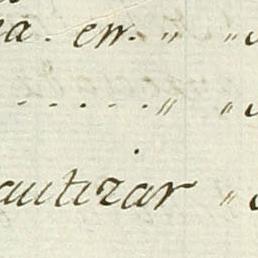 a. en. „ „
. . . . . „ „
autizar „